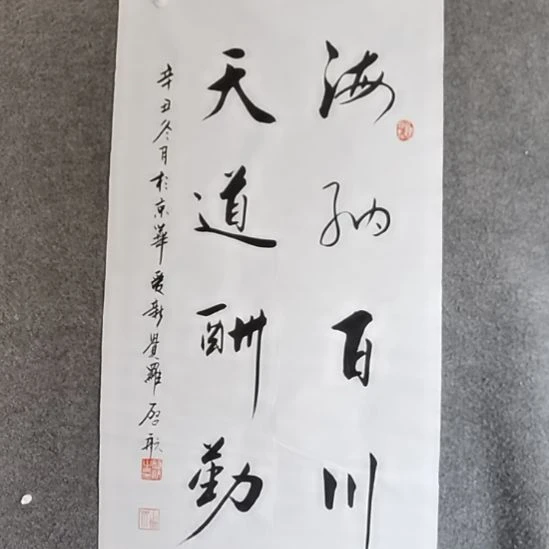 海纳百川
天道酬勤
辛丑冬月於京華愛新覺羅啓航